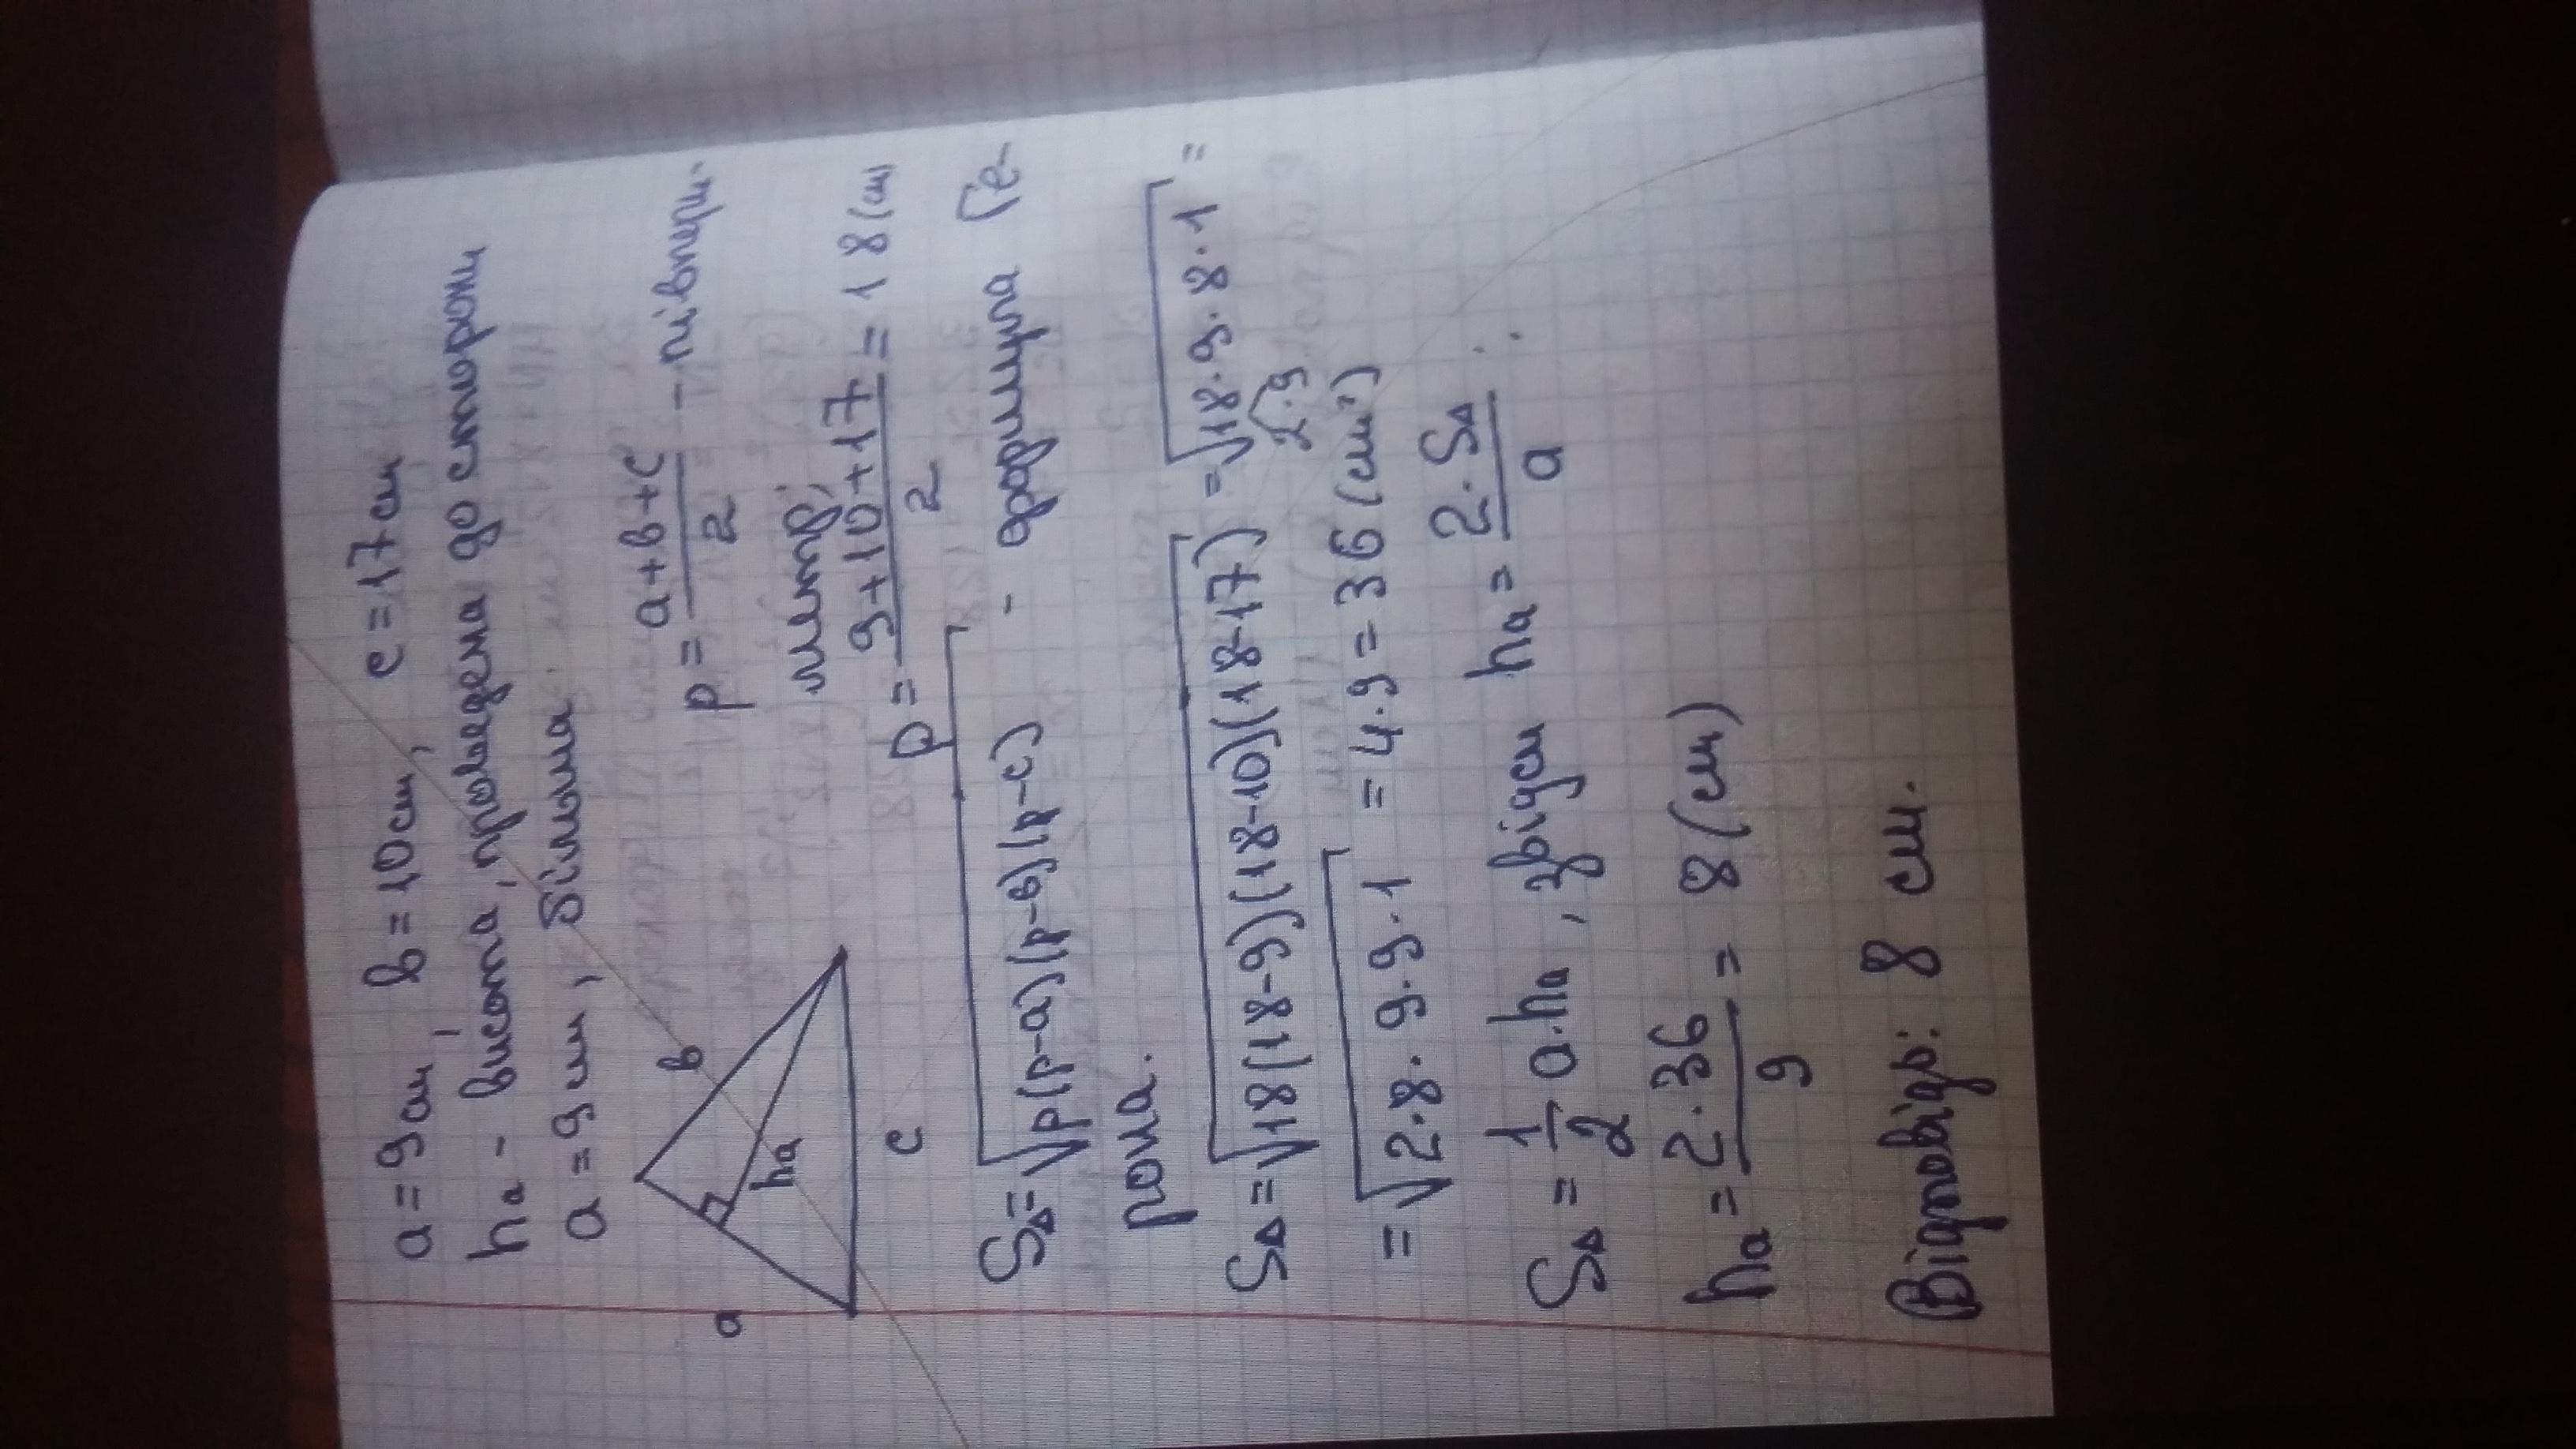 a = 9 см, в = 10 см, c = 17 см
hₐ - висота, проведена до сторони
a = 9 см, більша
a
в
hₐ
c
p = (a+в+c)/2 - півпери-
метр;
p = (9+10+17)/2 = 18 (см
S∆ = √p(p-a)(p-в)(p-c) - формула Ге-
рона.
S∆ = √18(18-9)(18-10)(18-17) = √18·9·8·1 =
2·9
= √2·8·9·9·1 = 4·9 = 36 (см²)
S∆ = 1/2 a·hₐ, звідси hₐ = 2·S∆/a :
hₐ = 2·36/9 = 8 (см)
Відповідь: 8 см.